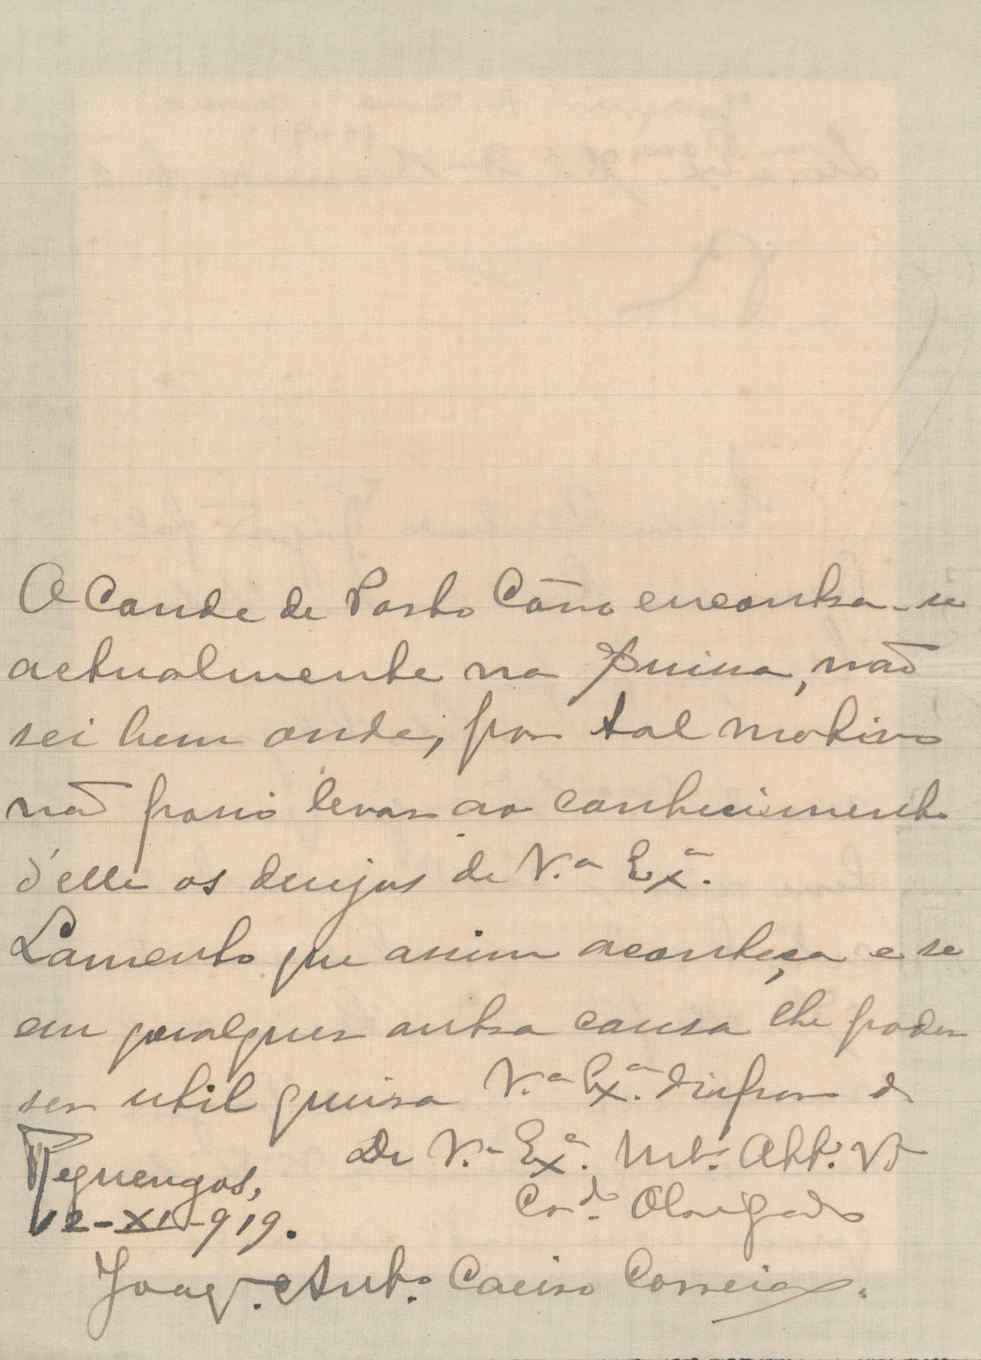 O Conde de Porto Côvo encontra-se
actualmente na Suissa, não
sei bem onde, por tal motivo
não posso levar ao conhecimento
d'elle os desejos de V.ª Ex.ª
Lamento que assim aconteça e se
em qualquer outra causa lhe poder
ser util queira V.ª Ex.ª dispor d
De V.ª Ex.ª Mt.º Att.º Vor
Cr.do Obrigado
Reguengos,
12-XI-919.
Joaq. Ant.º Caeiro Correia.